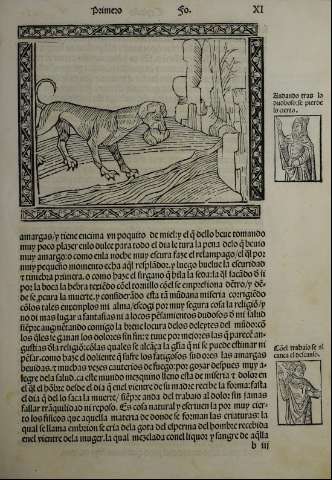 Primero
Fo.
XI
Andando tras lo
dudoso, se pierde
lo cierto.
amargas: y tiene encima vn poquito de miel: y el q̃ dello beue tomando
muy poco plazer enlo dulce para todo el dia le tura la pena delo q̃ beuio
muy amargo: o como enla noche muy escura faze el relampago: el q̃l por
muy pequeño momento echa aq̃l resplãdor, y luego buelue la escuridad
y teniebra primera. o como haze el que hila la seda: la q̃l sacãdo d̃ si
por la boca la hebra
de se, pcura la muerte, y considerãdo esta mi misma miseria corrigiẽdo
cõ los tales enxemplos mi alma, escogi por muy segura cosa la religiõ, y
no di mas lugar a fantasias ni a locos pensamientos dudosos d̃ mi salud
siẽpre augmẽtando comigo la breue locura delos deleytes del mũdo: d̃
los q̃les se ganan los dolores sin fin: tuue por mejores las q̃ parecẽ an-
gustias d̃la religiõ: cõlas quales se alcãça la gl̃ia q̃ ni se puede estimar ni
pẽsar. como haze el doliente q̃ sufre los fatigosos sudores las amargas
beuidas, y muchas vezes cauterios de fuego: por gozar despues muy a-
legre dela salud. ca este mundo mezquino lleno esta de miseria y dolor en
el q̃l el hõbre desde el dia q̃ enel vientre de su madre recibe la forma: fasta
el dia q̃ del lo saca la muerte, siẽpre anda del trabajo al dolor sin jamas
fallar trãquilidad ni reposo. Es cosa natural y escriuen la por muy cier-
to los fisicos que aquella materia de donde se forman las criaturas: la
qual se llama embrion se cria dela gota del esperma del hombre recebida
enel vientre dela muger. la qual mezclada conel liquor y sangre de aq̃lla
Cõel trabajo se al
cança el descanso.
b iij